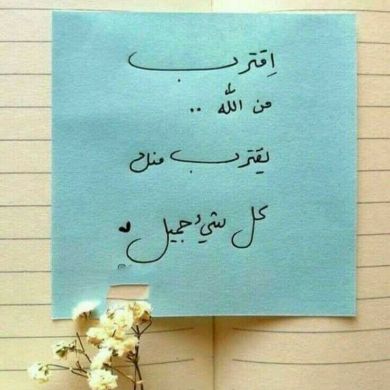 اِقترب
من اللّه ..
يقترب منك
كل شيءٍ جميل